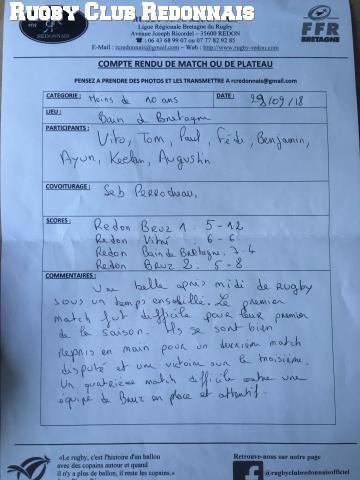 Rugby Club Redonnais
REDONNAIS
Ligue Régionale Bretagne du Rugby
Avenue Joseph Ricordel – 35600 REDON
☎ 06 43 68 99 07 ou 07 77 82 92 05
E-Mail : rcredonnais@gmail.com – Web : http://www.rugby-redon.com
FFR
BRETAGNE
COMPTE RENDU DE MATCH OU DE PLATEAU
PENSEZ A PRENDRE DES PHOTOS ET LES TRANSMETTRE A rcredonnais@gmail.com
CATEGORIE : Moins de 10 ans
DATE : 29/09/18
LIEU : Bain d Bretagne
PARTICIPANTS :
Vito, Tom, Paul, Fédé, Benjamin,
Ayun, Keelan, Augustin
COVOITURAGE :
Seb Perrodeau,
SCORES :
Redon Bruz 1 : 5-12
Redon Vitré : 6-6
Redon Bain de Bretagne : 7-4
Redon Bruz 2 : 5-8
COMMENTAIRES :
Une belle après midi de rugby
sous un temps ensoleillé. Le premier
match fut difficile pour leur premier
de la saison. Ils se sont bien
repris en main pour un deuxième match
disputé et une victoire sur le troisième.
Un quatrième match difficile contre une
équipe de Bruz en place et attentif.
«Le rugby, c'est l'histoire d'un ballon
avec des copains autour et quand
il n'y a plus de ballon, il reste les copains.»
Retrouvez-nous sur notre page
@rugbyclubredonnaisofficiel